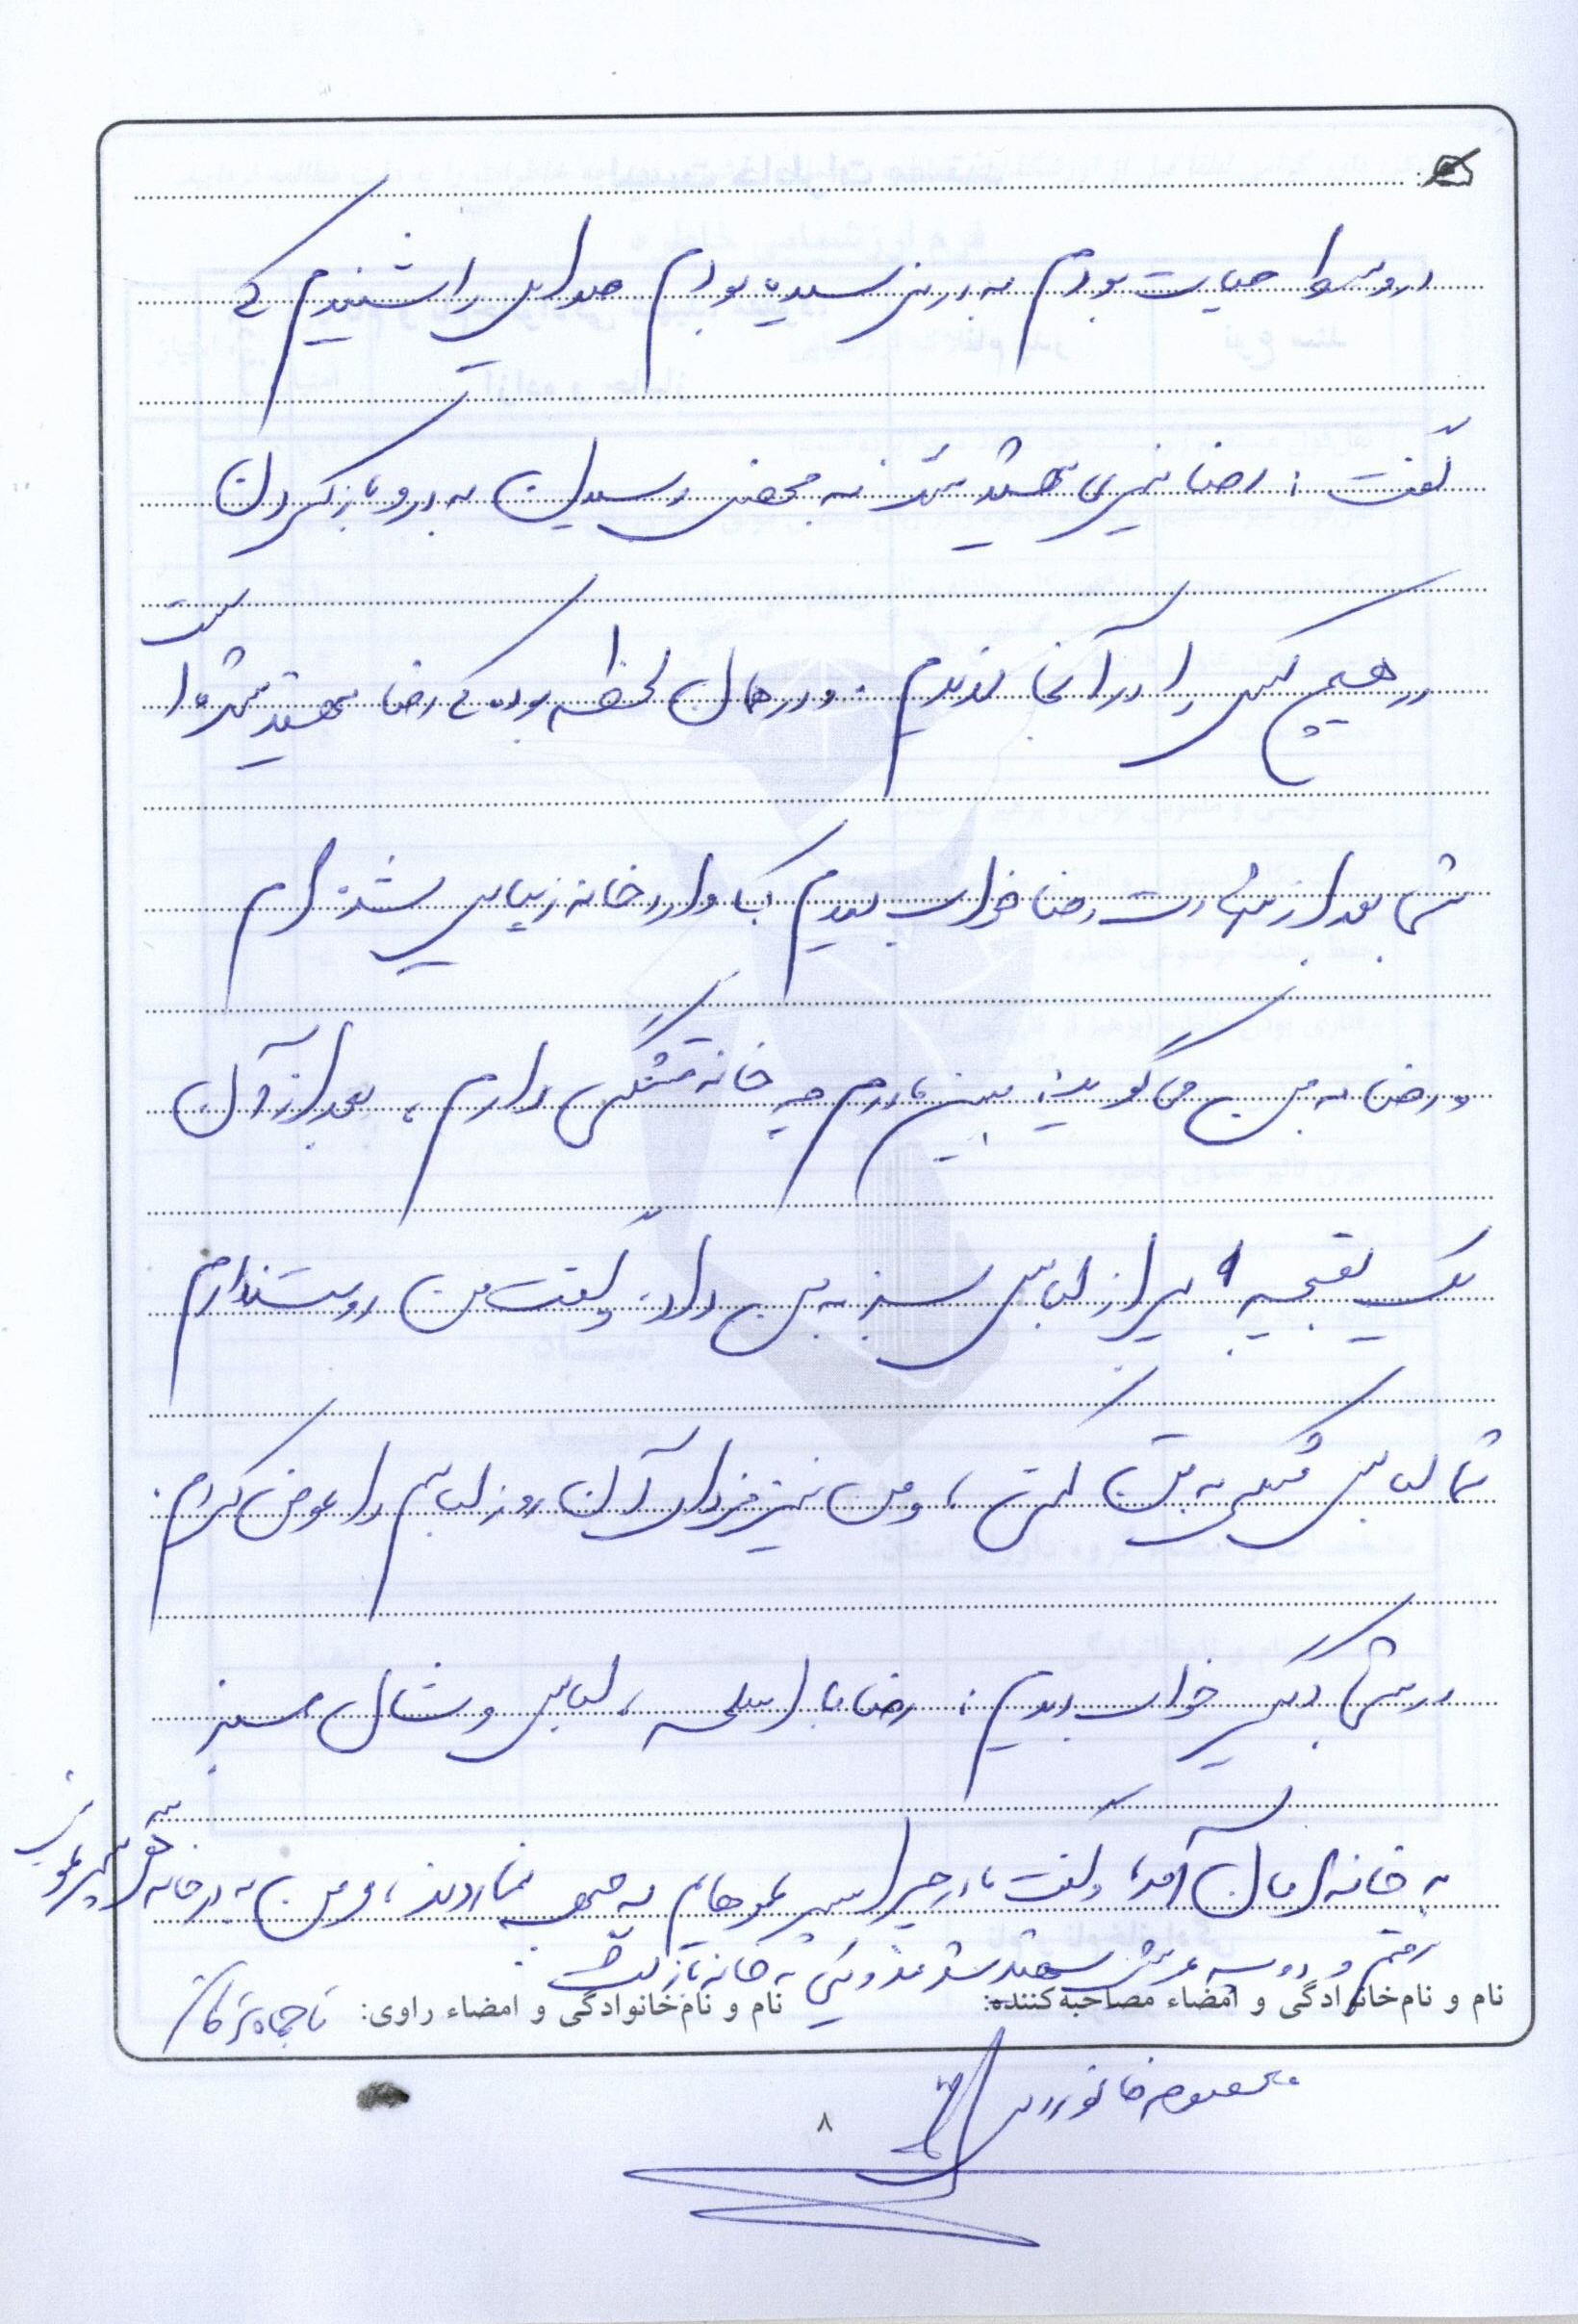 در وسط حیات بودم به در نرسیده بودم صدایی را شنیدم که
گفت: رضا نیری شهید شد. به محض رسیدن به در و باز کردن
در هیچ کس را در آنجا ندیدم. و در همان لحظه بوده که رضا شهید شده است
شبها بعد از شهادت رضا خواب دیدم که وارد خانه زیبایی شده ام
و رضا به من می گوید: ببین مادرم چه خانه قشنگی دارم، بعد از آن
یک بقچه پر از لباس سبز به من داد. و گفت من دوست ندارم
شما لباس مشکی به تن کنی، و من نیز فردای آن روز لباسم را عوض کردم.
در شبهای دیگر خواب دیدم: رضا با اسلحه، لباس و شال سبز
به خانه امان آمد، و گفت مادر چرا پسر عموهایم به جبهه نمی روند، و من به در خانه پسر عموش
رفتم و دو سه عموش شهید شدند و یکی به خانه باز گشت
نام و نام‌خانوادگی و امضاء مصاحبه‌کننده: نام و نام‌خانوادگی و امضاء راوی:
معصومه خانوردی
۸